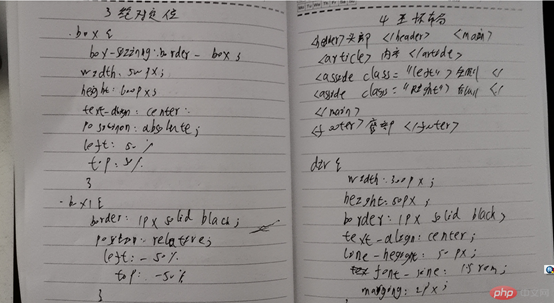 3 绝对定位
.box {
box-sizing: border-box;
width: 500px;
height: 600px;
text-align: center;
position: absolute;
left: 50%
top: 50%
}
.box1 {
border: 1px solid black;
position: relative;
left: -50%
top: -50%
}
4 圣杯布局
<header> 头部 </header> <main>
<article> 内容 </article>
<asside class="left"> 左侧 </
<asside class="Right"> 右侧 </
</main>
<footer> 底部 </footer>
div {
width: 300px;
height: 50px;
border: 1px solid black;
text-align: center;
line-height: 50px;
font-size: 1.5rem;
margging: 2px;
php 中文网